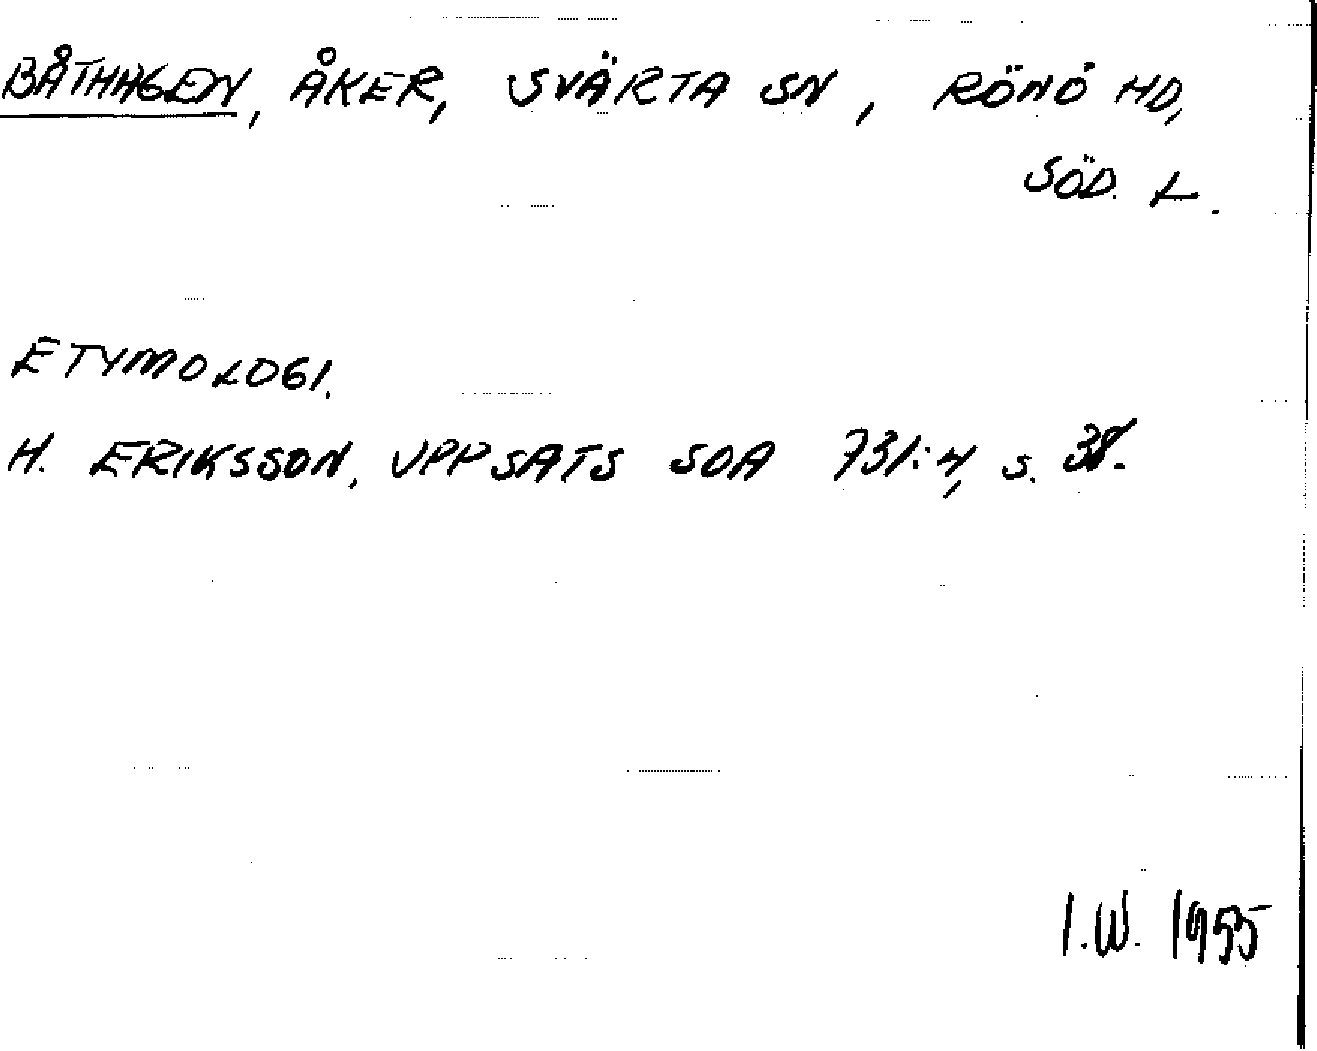 BÅTHAGEN, ÅKER, SVÄRTA SN, RÖNÖ HD,
SÖD. L.
ETYMOLOGI.
H. ERIKSSON, UPPSATS SOA 731:4, S. 38.
I.W. 1955